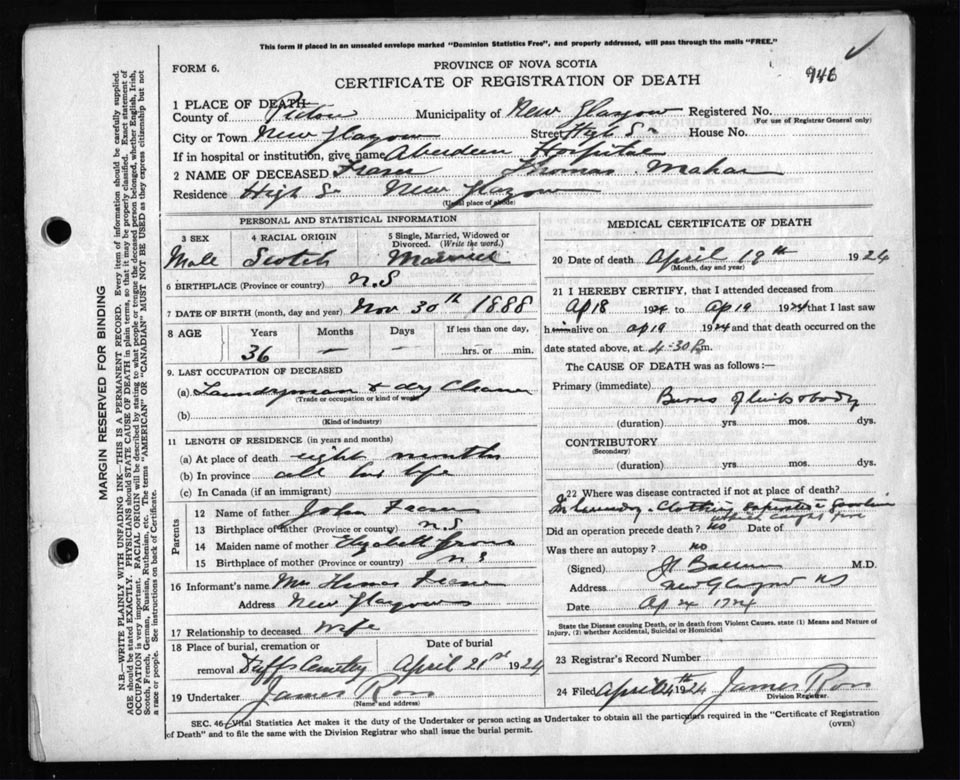 This form if placed in an unsealed envelope marked "Dominion Statistics Free", and properly addressed, will pass through the mails "FREE."
FORM 6.
PROVINCE OF NOVA SCOTIA
946
CERTIFICATE OF REGISTRATION OF DEATH
1 PLACE OF DEATH
County of Pictou Municipality of New Glasgow Registered No.
(For use of Registrar General only)
City or Town New Glasgow Street High St House No.
If in hospital or institution, give name Aberdeen Hospital
2 NAME OF DECEASED Fraser Thomas Mahar
Residence High St New Glasgow
(Usual place of abode)
PERSONAL AND STATISTICAL INFORMATION
3 SEX
Male
4 RACIAL ORIGIN
Scotch
5 Single, Married, Widowed or Divorced. (Write the word.)
Married
6 BIRTHPLACE (Province or country) N.S
7 DATE OF BIRTH (month, day and year) Nov 30th 1888
8 AGE Years Months Days If less than one day,
36 — — hrs. or min.
9. LAST OCCUPATION OF DECEASED
(a) Laundryman & dry Cleaner
(Trade or occupation or kind of work)
(b)
(Kind of industry)
11 LENGTH OF RESIDENCE (in years and months)
(a) At place of death eight months
(b) In province all his life
(c) In Canada (if an immigrant)
Parents
12 Name of father John Fraser
13 Birthplace of father (Province or country) N.S
14 Maiden name of mother Elizabeth
15 Birthplace of mother (Province or country) N S
16 Informant's name Mrs Fraser
Address New Glasgow
17 Relationship to deceased wife
18 Place of burial, cremation or removal Date of burial
Duffs Cemetery April 21st 1924
19 Undertaker James Ross
(Name and address)
MEDICAL CERTIFICATE OF DEATH
20 Date of death April 19th 1924
(Month, day and year)
21 I HEREBY CERTIFY, that I attended deceased from
Ap 18 1924 to Ap 19 1924 that I last saw
him alive on ap 19 1924 and that death occurred on the
date stated above, at 4-30 Pm.
The CAUSE OF DEATH was as follows:—
Primary (immediate) Burns of limbs & body
(duration) yrs. mos. dys.
CONTRIBUTORY
(Secondary)
(duration) yrs. mos. dys.
22 Where was disease contracted if not at place of death?
In Laundry. Clothing saturated Gasoline
which caught fire
Did an operation precede death? no Date of
Was there an autopsy? no
(Signed) M.D.
Address New Glasgow NS
Date Ap 24 1924
State the Disease causing Death, or in death from Violent Causes. state (1) Means and Nature of Injury, (2) whether Accidental, Suicidal or Homicidal
23 Registrar's Record Number
24 Filed April 24th 1924 James Ross
Division Registrar.
SEC. 46—Vital Statistics Act makes it the duty of the Undertaker or person acting as Undertaker to obtain all the particulars required in the "Certificate of Registration
of Death" and to file the same with the Division Registrar who shall issue the burial permit.
(OVER)
MARGIN RESERVED FOR BINDING
N.B.—WRITE PLAINLY WITH UNFADING INK—THIS IS A PERMANENT RECORD. Every item of information should be carefully supplied.
AGE should be stated EXACTLY. PHYSICIANS should STATE CAUSE OF DEATH in plain terms, so that it may be properly classified. Exact statement of
OCCUPATION is very important. RACIAL ORIGIN will be described by stating to what people or tongue the deceased person belonged, whether English, Irish,
Scotch, French, German, Russian, Ruthenian, etc. The terms "AMERICAN" OR "CANADIAN" MUST NOT BE USED as they express citizenship but not
a race or people. See instructions on back of Certificate.